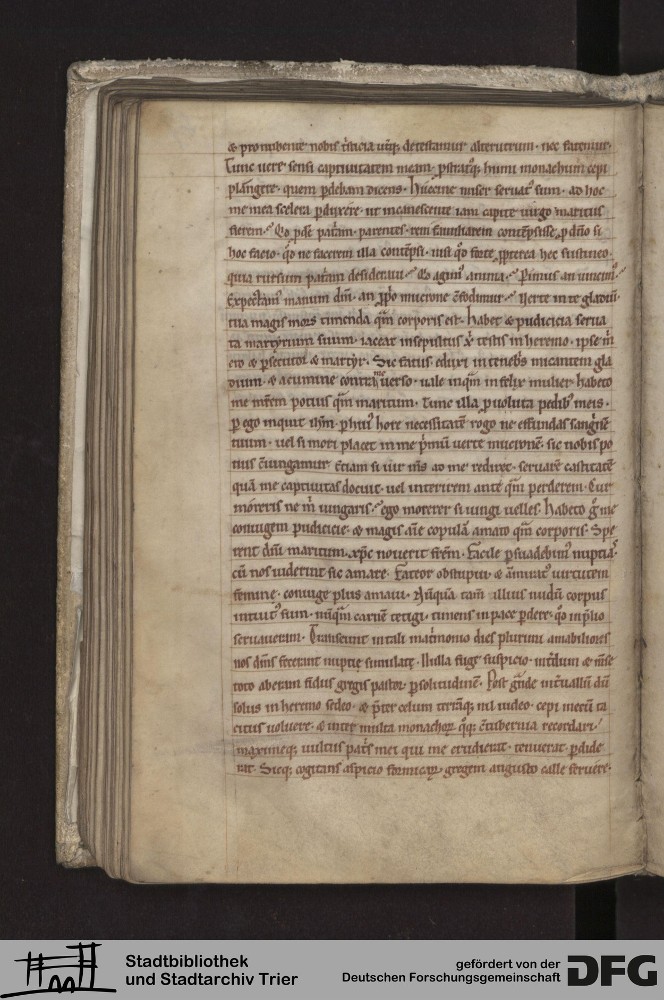 & pronubente nobis t'sticia ut'q; detestamur alterutrum · nec fatemur·
Tunc uere sensi captiuitatem meam· p̄stratq; humi monachum cepi
plangere· quem p̄debam dicens· Huccine miser seruat' sum· ad hoc
me mea scelera p̄duxere· ut incanescente iam capite uirgo maritus
fierem· Qd p̄de pat'am· parentes· rem familiarem contēpsisse p dn̄o si
hoc facio· q'd ne facerem illa contēpsi· nisi q'd forte propterea hec sustineo·
quia rursum pat'am desideraui· Qd agim' anima· Perimus an uincim'·
Expectam' manum dn̄i· an p̄prio mucrone c̄fodimur· Verte in te gladiū·
tua magis mors timenda q̄m corporis est· Habet & pudicicia serua
ta martyrium suum· iaceat insepultus x̄p̄i testis in heremo· ipse m̄
ero & p̄secutor & martyr· Sic fatus eduxi in tenebris micantem gla
dium· & acumine contra me uerso· uale inq̄m infelix mulier· habeto
me mr̄em potius q̄m maritum· Tunc illa p̄uoluta pedib' meis·
p̄ ego inquit ih̄m· p̄ hui' hore necessitatē rogo ne effundas sanguinē
tuum· uel si mori placet in me p'mū uerte mucronē· sic nobis po
tius c̄iungamur Etiam si uir m̄s ad me rediret· seruarē castitatē
quā me captiuitas docuit· uel interirem ante q̄m perderem· Cur
moreris ne m̄ iungaris· ego morerer si iungi uelles· Habeto g° me
coniugem pudicicie· & magis aīe copulā amato q̄m corporis· Spe
rent dn̄i maritum· xp̄c nouerit fr̄em· Facile p̄suadebim' nuptias
cū nos uiderint sic amare· Fateor obstupui· & āmirat' uirtutem
femine· coniuge plus amaui· Nūquā tam̄ illius nudū corpus
intuit' sum· nūq̄m carnē tetigi· timens in pace p̄dere· q'd in p̄lio
seruaueram· Transeunt in tali mat'monio dies plurimi· amabiliores
nos dn̄is fecerant nuptie simulate· Nulla fuge suspicio· int'dum & mēse
toto aberam fidus gregis pastor p̄ solitudinē· Post g'nde int'uallū dū
solus in heremo sedeo· & p̄ter celum terrāq; nil uideo· cepi mecū ta
citus uoluere· & inter multa monachorum q°q; c̄tubernia recordari·
maximeq; uultus pat's mei qui me erudierat· tenuerat· p̄dide
rat· Sicq; cogitans aspicio formicarum gregem angusto calle feruere·
Stadtbibliothek
und Stadtarchiv Trier
gefördert von der
Deutschen Forschungsgemeinschaft
DFG